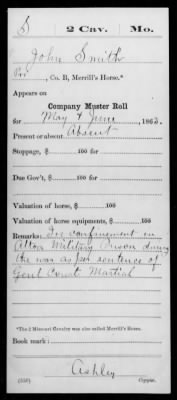 S | 2 Cav. | Mo.
John Smith
Pvt, Co. B, Merrill's Horse.*
Appears on
Company Muster Roll
for May & June, 1863.
Present or absent Absent
Stoppage, $ 100 for
Due Gov't, $ 100 for
Valuation of horse, $ 100
Valuation of horse equipments, $ 100
Remarks: In confinement in
Alton Military Prison during
the war as per sentence of
Genl Court Martial
*The 2 Missouri Cavalry was also called Merrill's Horse.
Book mark:
Ashley
(350) Copyist.